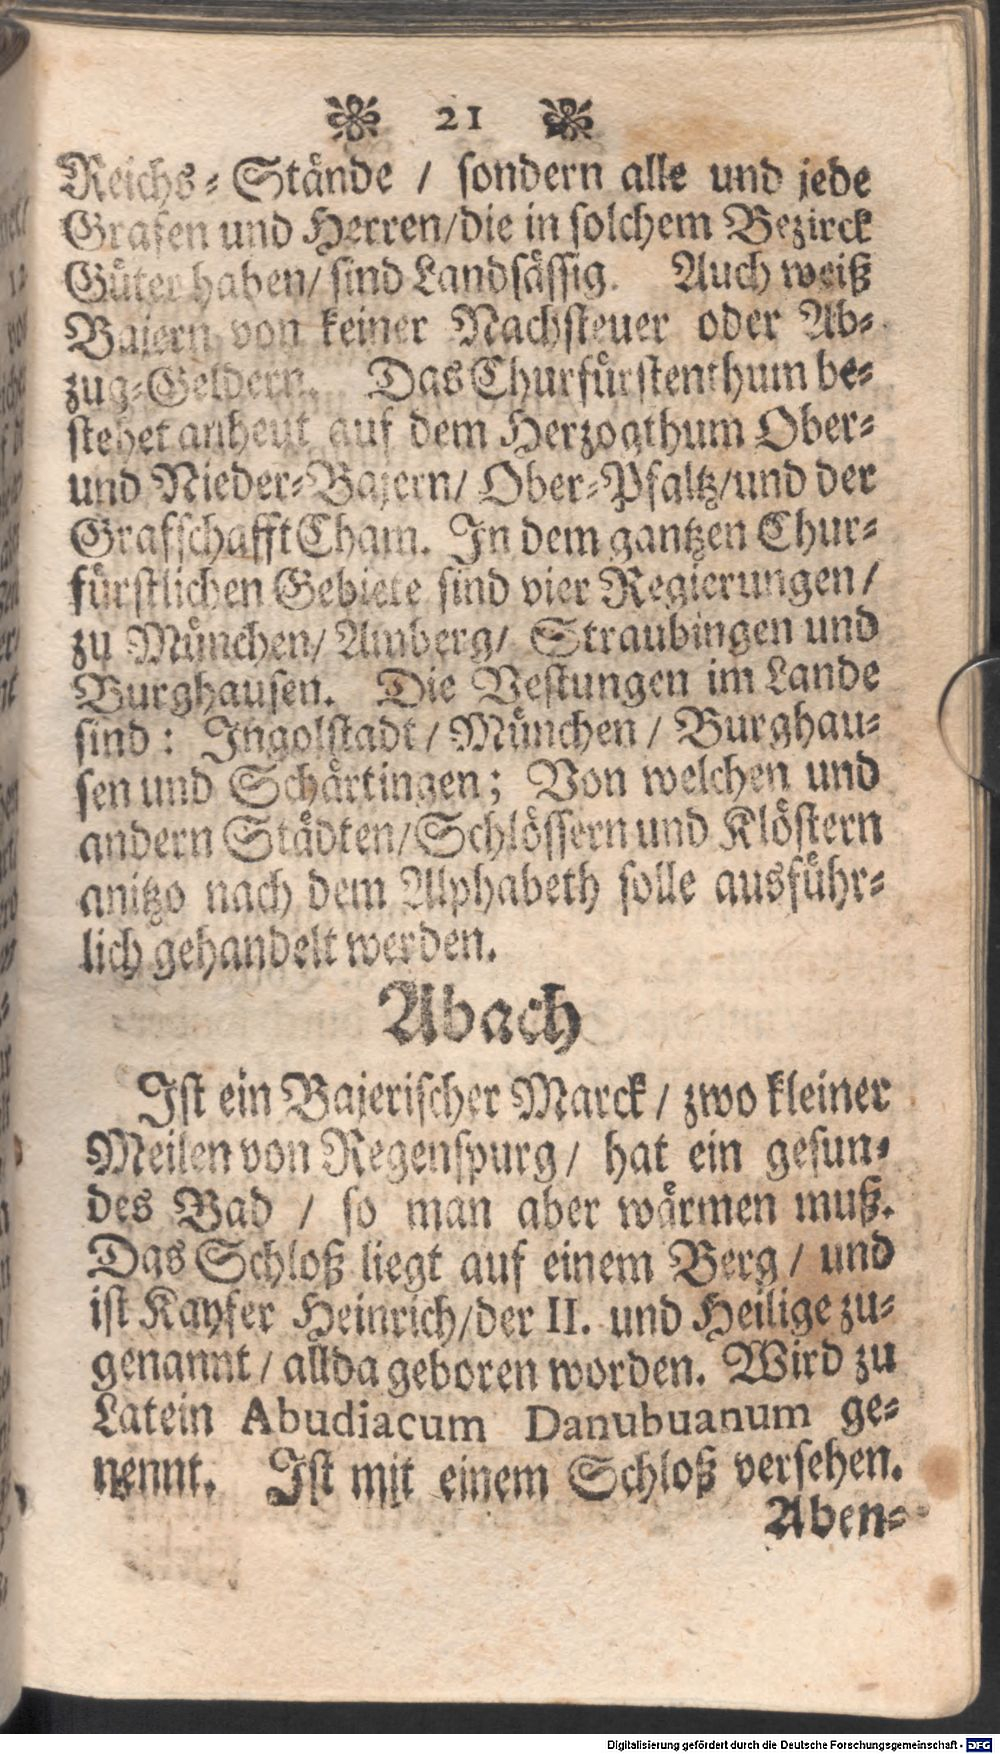 21
Reichs-Stände / sondern alle und jede
Grafen und Herren/die in solchem Bezirck
Güter haben/ sind Landsässig. Auch weiß
Bajern von keiner Nachsteuer oder Ab-
zug-Geldern. Das Churfürstenthum be-
stehet anheut auf dem Herzogthum Ober-
und Nieder-Bajern/ Ober-Pfaltz/und der
Grafschafft Cham. In dem gantzen Chur-
fürstlichen Gebiete sind vier Regierungen/
zu München/ Amberg/ Straubingen und
Burghausen. Die Vestungen im Lande
sind: Ingolstadt/ München / Burghau-
sen und Schärtingen; Von welchen und
andern Städten/Schlössern und Klöstern
anitzo nach dem Alphabeth solle ausführ-
lich gehandelt werden.
Abach
Ist ein Bajerischer Marck / zwo kleiner
Meilen von Regenspurg / hat ein gesun-
des Bad / so man aber wärmen muß.
Das Schloß liegt auf einem Berg / und
ist Kayser Heinrich/der II. und Heilige zu-
genannt / allda geboren worden. Wird zu
Latein Abudiacum Danubuanum ge-
nennt. Ist mit einem Schloß versehen.
Aben-
Digitalisierung gefördert durch die Deutsche Forschungsgemeinschaft - DFG